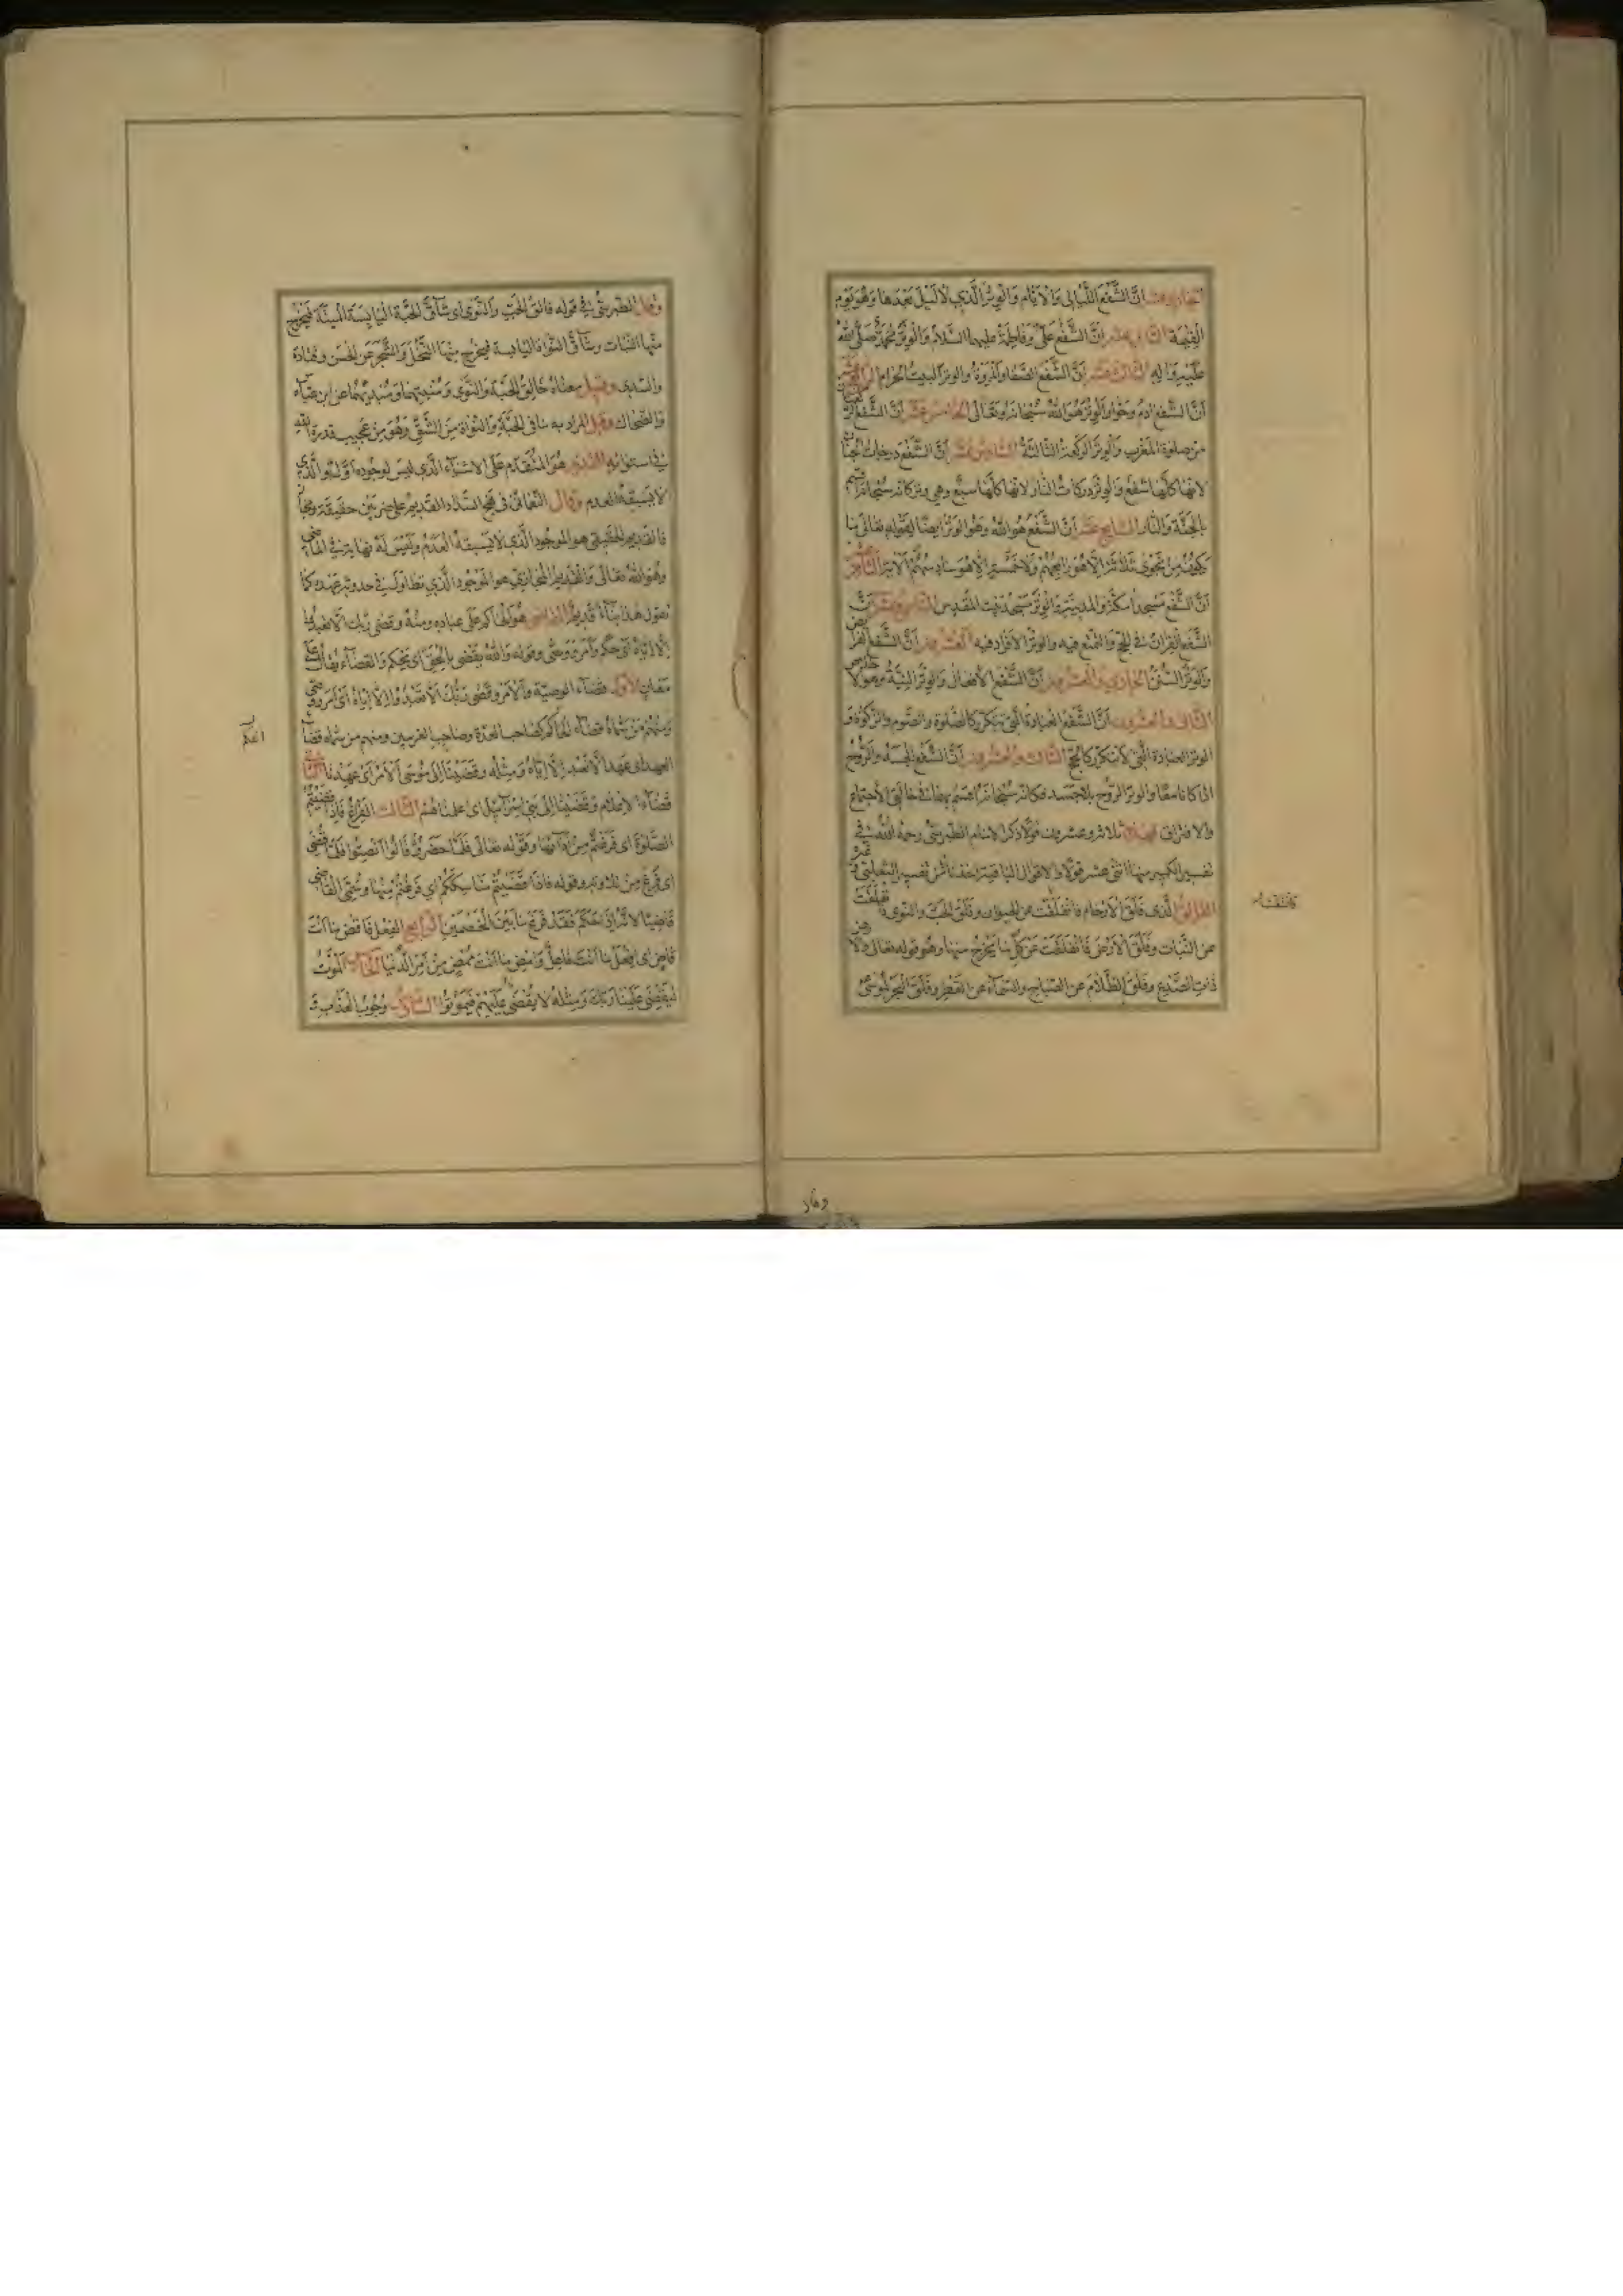 الحادي عشر انّ الشّفع اللّيالى والايّام والوتر الّذي لا ليل بعدها وهو يوم
القيمة الثاني عشر انّ الشّفع علىّ وفاطمة عليهما السّلام والوتر محمّد صلّى الله
عليه واله الثالث عشر انّ الشّفع الصّفا والمروة والوتر البيت الحرام الرابع عشر
انّ الشّفع ادم وحوّا والوتر هو الله سبحانه وتعالى الخامس عشر انّ الشّفع
من صلوة المغرب والوتر الركعة الثالثة السادس عشر انّ الشّفع درجات الجنان
لانها كلّها شفع والوتر دركات النار لانها كلّها سبع وهي وتر كانه سبحانه اقسم
بالجنّة والنّار السابع عشر انّ الشّفع هو الله وهو الوتر ايضا لقوله تعالى ما
يكون من نجوى ثلاثة الّا هو رابعهم ولا خمسة الا هو سادسهم الآية الثامن عشر
انّ الشّفع مسجدا مكّة والمدينة والوتر مسجد بيت المقدس التاسع عشر انّ
الشّفع القران في الحجّ والتمتّع فيه والوتر الافراد فيه العشرون انّ الشّفع الفرايض
والوتر السّنن الحادي والعشرون انّ الشّفع الأفعال والوتر النيّة وهو الاخلاص
الثاني والعشرون انّ الشّفع العبادة الّتي تتكرّر كالصّلوة والصّوم والزّكوة و
الوتر العبادة الّتي لا تتكرّر كالحجّ الثالث والعشرون انّ الشّفع الجسد والرّوح
اذا كانا معًا والوتر الرّوح بلا جسد فكانه سبحانه اقسم بهما في حالتى الأجتماع
والافتراق فهذه ثلاثة وعشرون قولًا ذكر الامام الطبرسىّ رحمه الله في
تفسيره الكبير منها اثنى عشر قولًا والاقوال الباقية اخذناها من تفسير الثعلبي وغيره
الفالق الّذى فلق الأرحام فانفلقت عن الحيوان وفلق الحبّ والنوى فانفلقت
عن النّبات وفلق الأرض فانفلقت عن كلّ ما يخرج منها وهو قوله تعالى والارض
ذات الصّدع وفلق الظّلام عن الصّباح والسّمآء عن القطر وفلق البحر لموسىٰ
وقال
وقال الطبرسىّ في قوله فالق الحبّ والنّوى اى شآقّ الحبّة اليابسة الميتة فيخرج
منها النبات وشآقّ النواة اليابسة فيخرج منها النّخل والشّجر عن الحسن وقتادة
والسّدى وقيل معناه خالق الحبّ والنّوى ومنشئهما ومبديهما عن ابن عبّاس
والضّحاك وقيل المراد به ما في الحبّة والنّواة من الشّقّ وهو من عجيب قدرة الله
في استوائه القديم هو المتقدّم على الاشيآء الّذى ليس لوجوده اوّل او الّذي
لا يسبقه العدم وقال
فالقديم الحقيقى هو الموجود الّذى لا يسبقه العدم وليس له نهاية في الماضى
وهو الله تعالى والقديم المجازيّ هو الموجود الّذي تطاول في حدوثه عهده كما
تقول هذا بناء قديم القاضى هو الحاكم على عباده ومنه وقضى ربّك الّا تعبدوا
الّا ايّاه اى حكم وامر ووصّى وقوله والله يقضى بالحقّ اى يحكم والقضآء يقال على
معانٍ الأوّل قضآء الوصيّة والأمر وقضى ربّك الّا تعبدوا الّا ايّاه اى امر ووصّى
العهد اى عهد الّا تعبدوا الّا ايّاه ومثله وقضينا الى موسى الأمر اى عهدنا الثاني
قضآء الاعلام وقضينا الى بنى اسرآئيل اى اعلمناهم الثالث الفراغ فاذا قضيتم
الصّلوة اى فرغتم من ادآئها وقوله تعالى فلمّا حضروه قالوا انصتوا فلمّا قضى
اى فرغ من تلاوته وقوله فاذا قضيتم مناسككم اي فرغتم منها وسمّى القاضى
قاضيًا لانّه اذا حكم فقد فرغ ما بين الخصمين الرابع الفعل فاقض ما انت
قاض اى افعل ما انت فاعل وامض ما انت ممضٍ من امر الدّنيا الخامس الموت
ليقض علينا ربّك ومثله لا يقضى عليهم فيموتوا السادس وجوب العذاب و